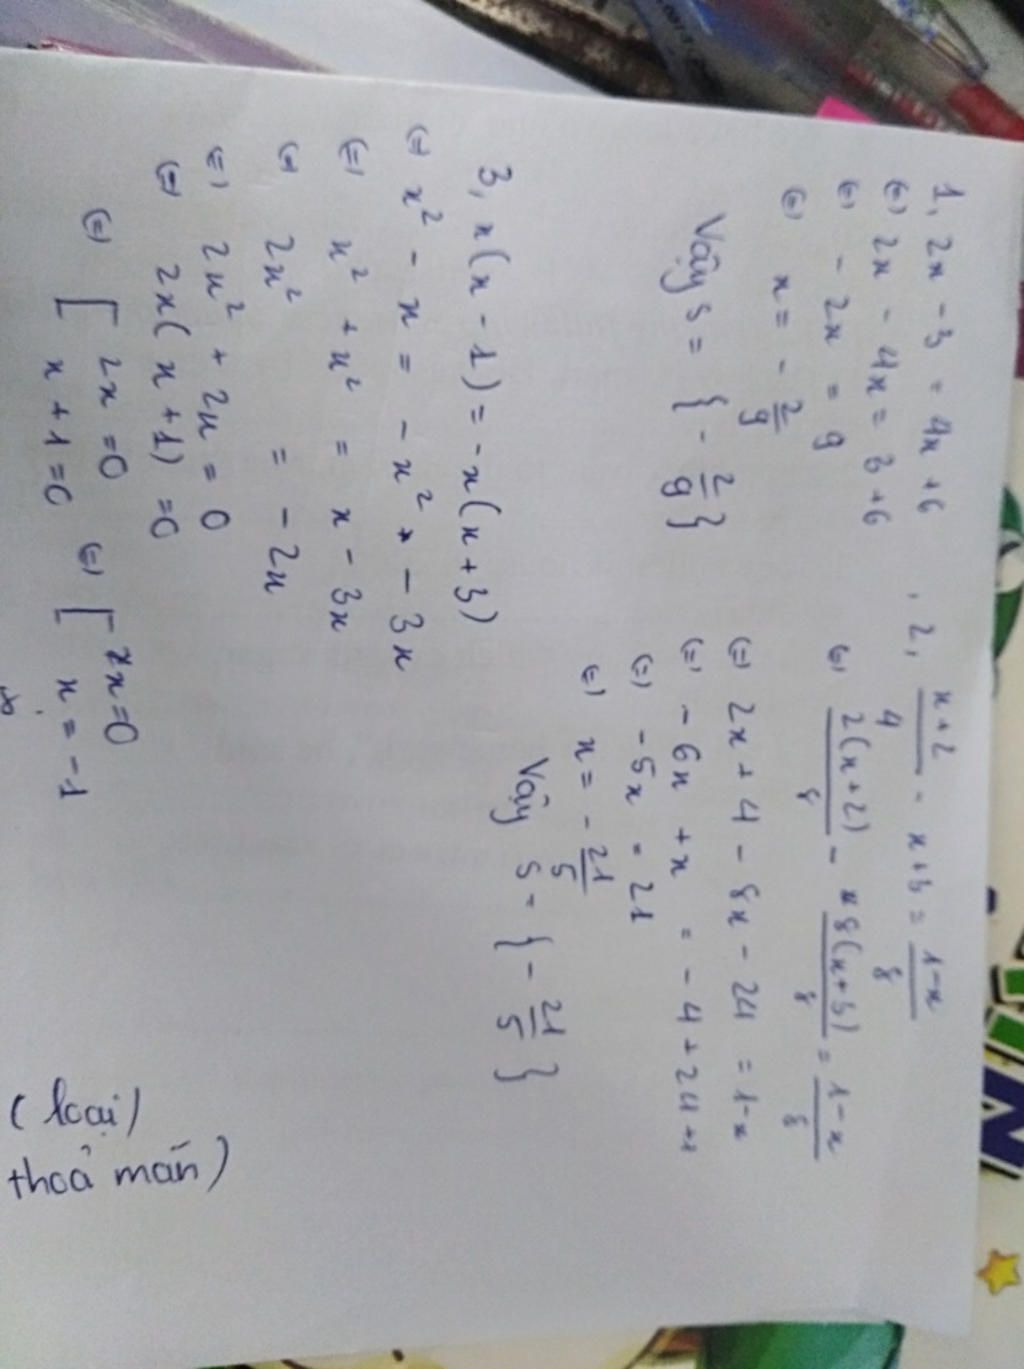 1, 2x - 3 = 4x + 6
(=) 2x - 4x = 3 + 6
(=) - 2x = 9
(=) x = - 2/9
Vậy S = { - 2/9 }
2, (x+2)/4 - x + 3 = (1-x)/8
(=) 2(x+2)/8 - 8(x+3)/8 = (1-x)/8
(=) 2x + 4 - 8x - 24 = 1-x
(=) - 6x + x = - 4 + 24 + 1
(=) - 5x = 21
(=) x = - 21/5
Vậy S = { - 21/5 }
3, x(x - 1) = - x(x + 3)
(=) x² - x = - x² - 3x
(=) x² + x² = x - 3x
(=) 2x² = - 2x
(=) 2x² + 2x = 0
(=) 2x(x + 1) = 0
(=) [ 2x = 0 (=) [ x = 0
x + 1 = 0 x = -1
(loại)
thoả mãn)